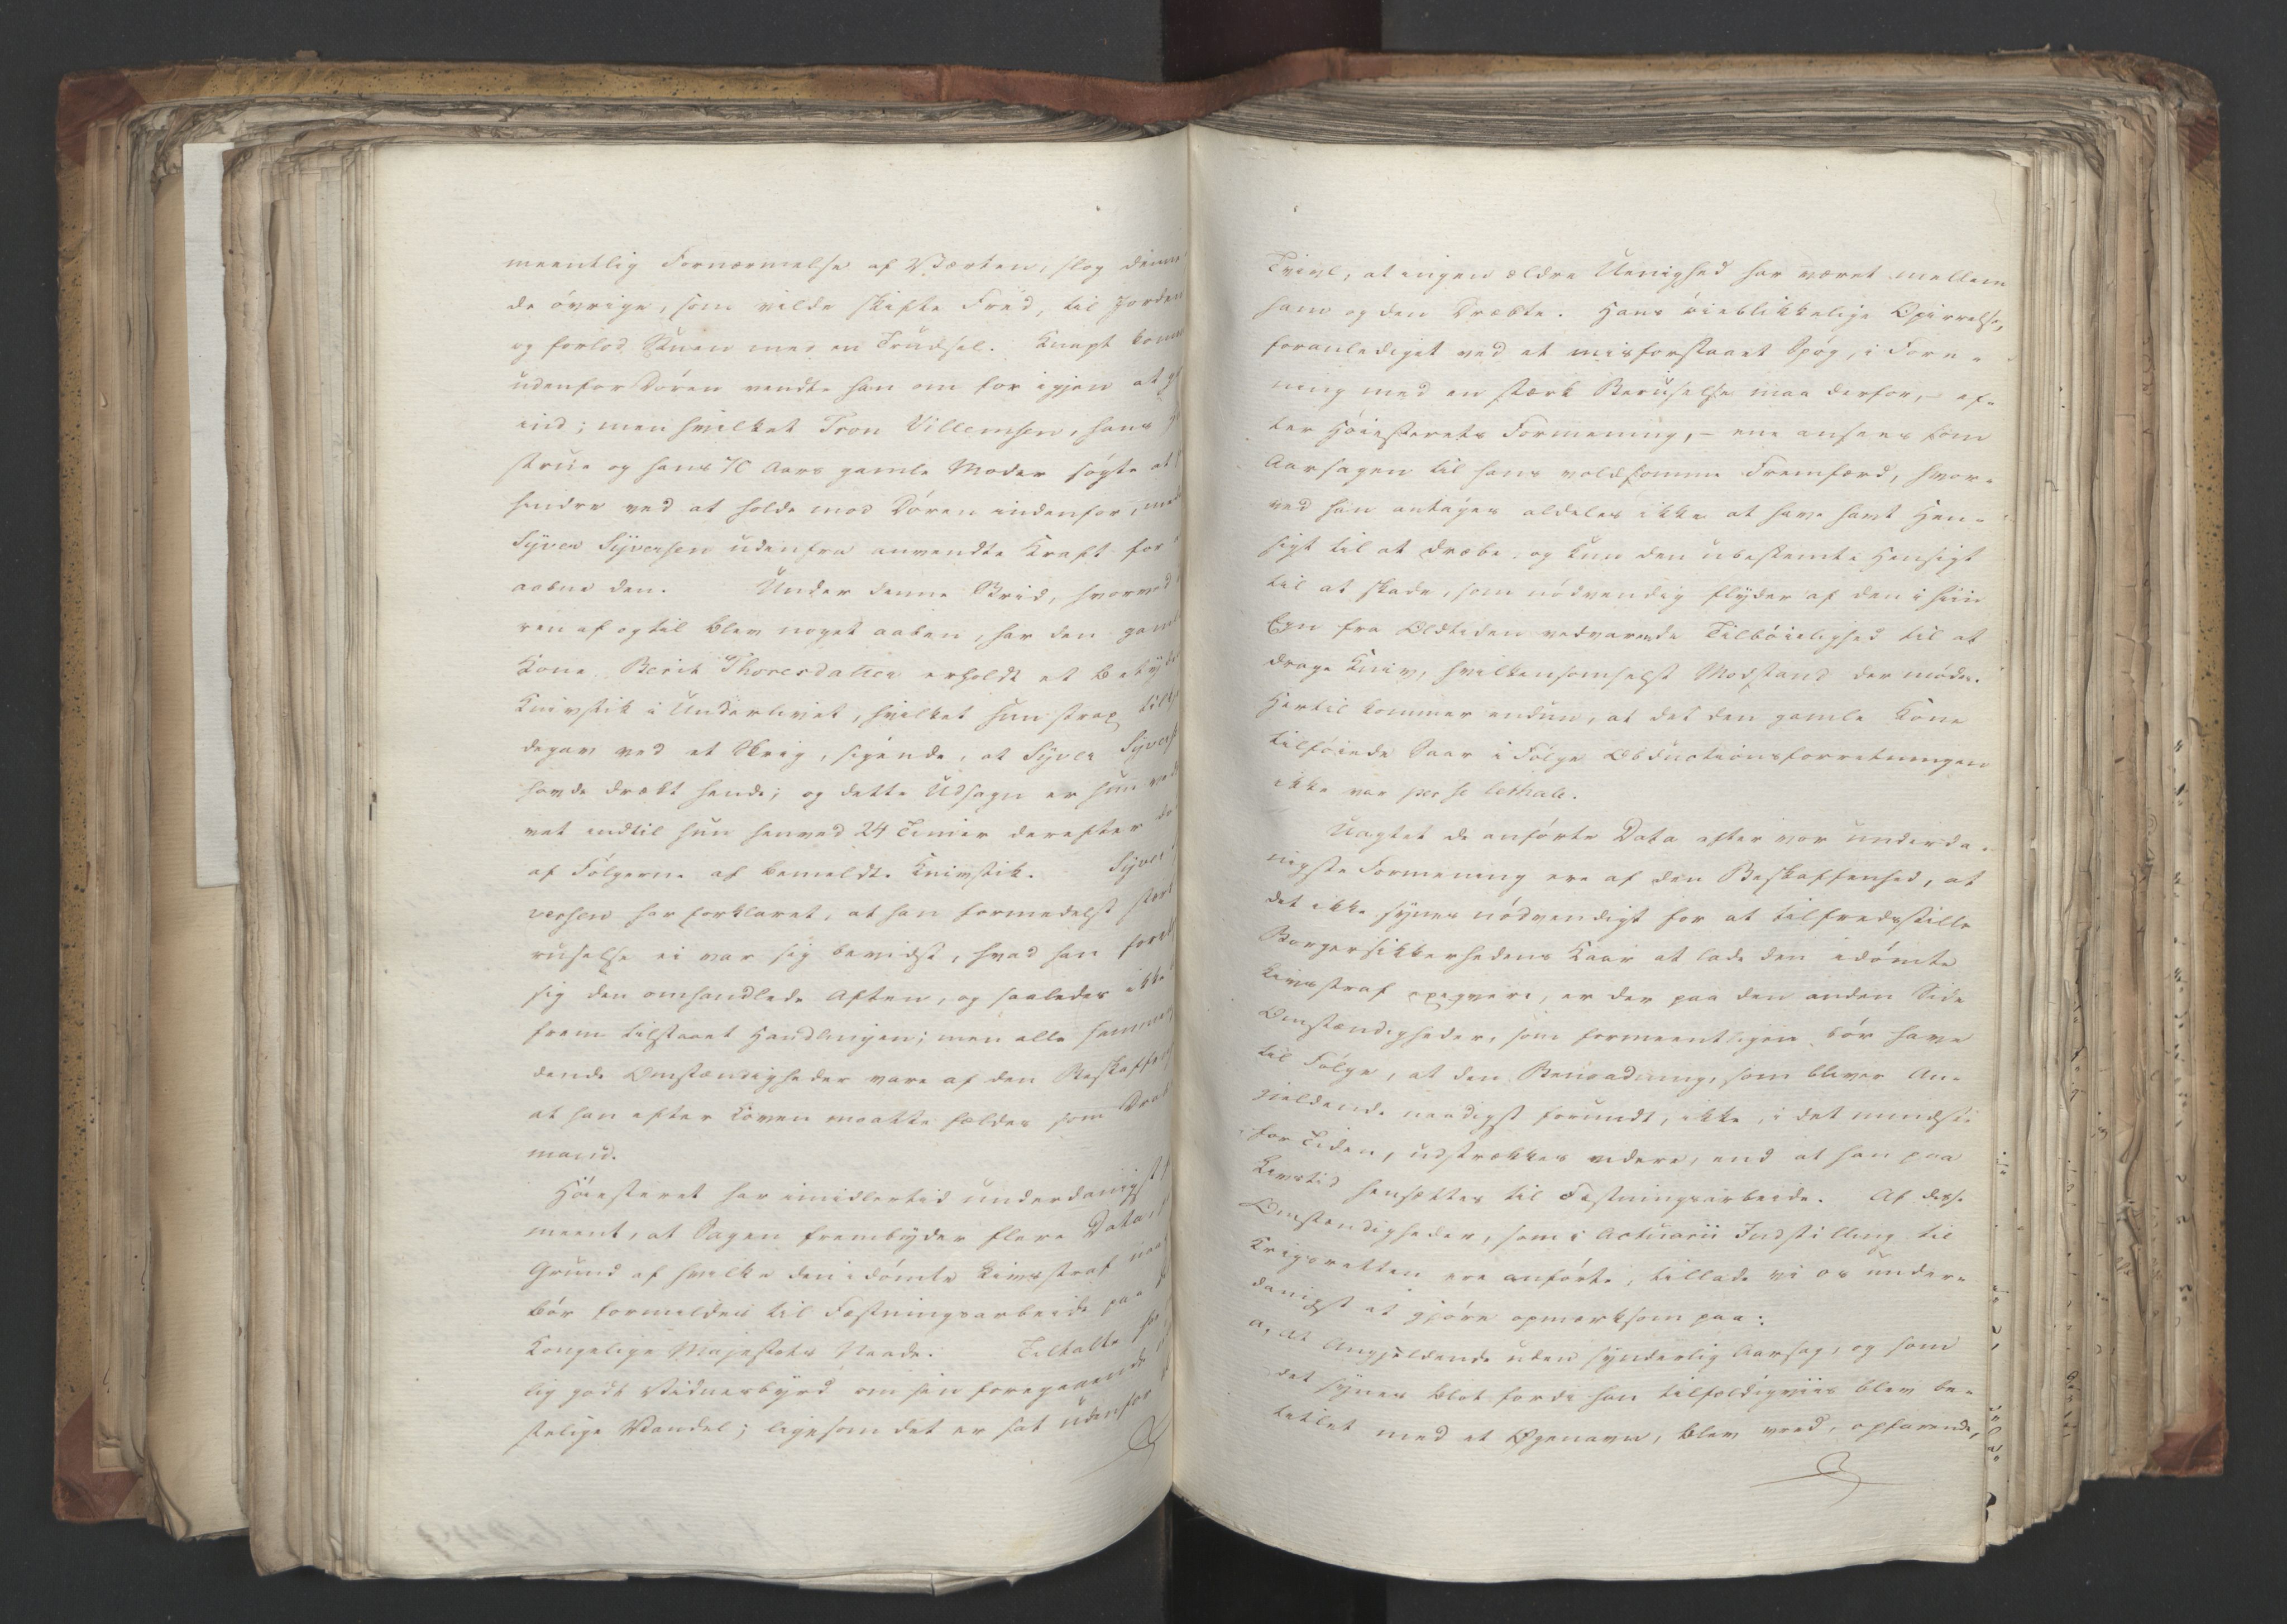 meentlig Fornærmelse af Værten, slog denne
de øvrige, som vilde skifte Fred, til Jorden
og forlod Stuen med en Trudsel. Knapt
udenfor Døren vendte han om for igjen at
ind; men hvilket Tron Villemsen, hans
strue og hans 70 Aars gamle Moder søgte at
hindre ved at holde mod Døren indenfor,
Syver Syversen udenfra anvendte Kraft for
aabne den. Under denne Strid, hvorved
ren af og til blev noget aaben, har den
Kone Berit Thoresdatter erholdt et
Knivstik i Underlivet, hvilket hun strax
degav ved et Skrig, sigende, at Syver
havde dræbt hende; og dette Udsagn er hun
vet indtil hun henved 24 Timer derefter
af Følgerne af bemeldte Knivstik. Syver
versen har forklaret, at han formedelst
ruselse ei var sig bevidst, hvad han
sig den omhandlede Aften, og saaledes ikke
frem tilstaaet Handlingen; men alle
dende Omstændigheder vare af den
at han efter Loven maatte fældes som
mand.
Høiesteret har imidlertid underdanigst
meent, at Sagen frembyder flere Data,
Grund af hvilke den idømte Livsstraf
bør formildes til Fæstningsarbeide paa
Kongelige Majestæts Naade. Tiltalte
lig godt Vidnesbyrd om sin foregaaende
stelige Vandel; ligesom det er sat udenfor
Tvivl, at ingen ældre Uenighed har været mellem
ham og den Dræbte. Hans øieblikkelige Opirrelse,
foranlediget ved et misforstaaet Spøg, i Fore-
ning med en stærk Beruselse maa derfor, – ef-
ter Høiesterets Formening, – ene ansees som
Aarsagen til hans voldsomme Fremfærd, hvor-
ved han antages aldeles ikke at have havt Hen-
sigt til at dræbe, og kun den ubestemte Hensigt
til at skade, som nødvendig flyder af den i hiin
Egn fra Oldtiden vedvarende Tilbøielighed til at
drage Kniv, hvilkensomhelst Modstand der møder.
Hertil kommer endnu, at det den gamle Kone
tilføiede Saar i Følge Obductionsforretningen
ikke var per se lethale.
Uagtet de anførte Data efter vor underda-
nigste Formening ere af den Beskaffenhed, at
det ikke synes nødvendigt for at tilfredsstille
Borgersikkerhedens Kaar at lade den idømte
Livsstraf exeqvere, er der paa den anden Side
Omstændigheder, som formeentligen bør have
til Følge, at den Benaadning, som bliver An-
gieldende naadigst forundt, ikke, i det mindste
for Tiden, udstrækkes videre, end at han paa
Livstid hensættes til Fæstningsarbeide. Af disse
Omstændigheder, som i Actuarii Indstilling til
Krigsretten ere anførte, tillade vi os under-
danigst at gjøre opmærksom paa:
a, at Angjeldende uden synderlig Aarsag, og som
det synes blot fordi han tilfældigviis blev be-
titlet med et Øgenavn, blev vred, opfarende,